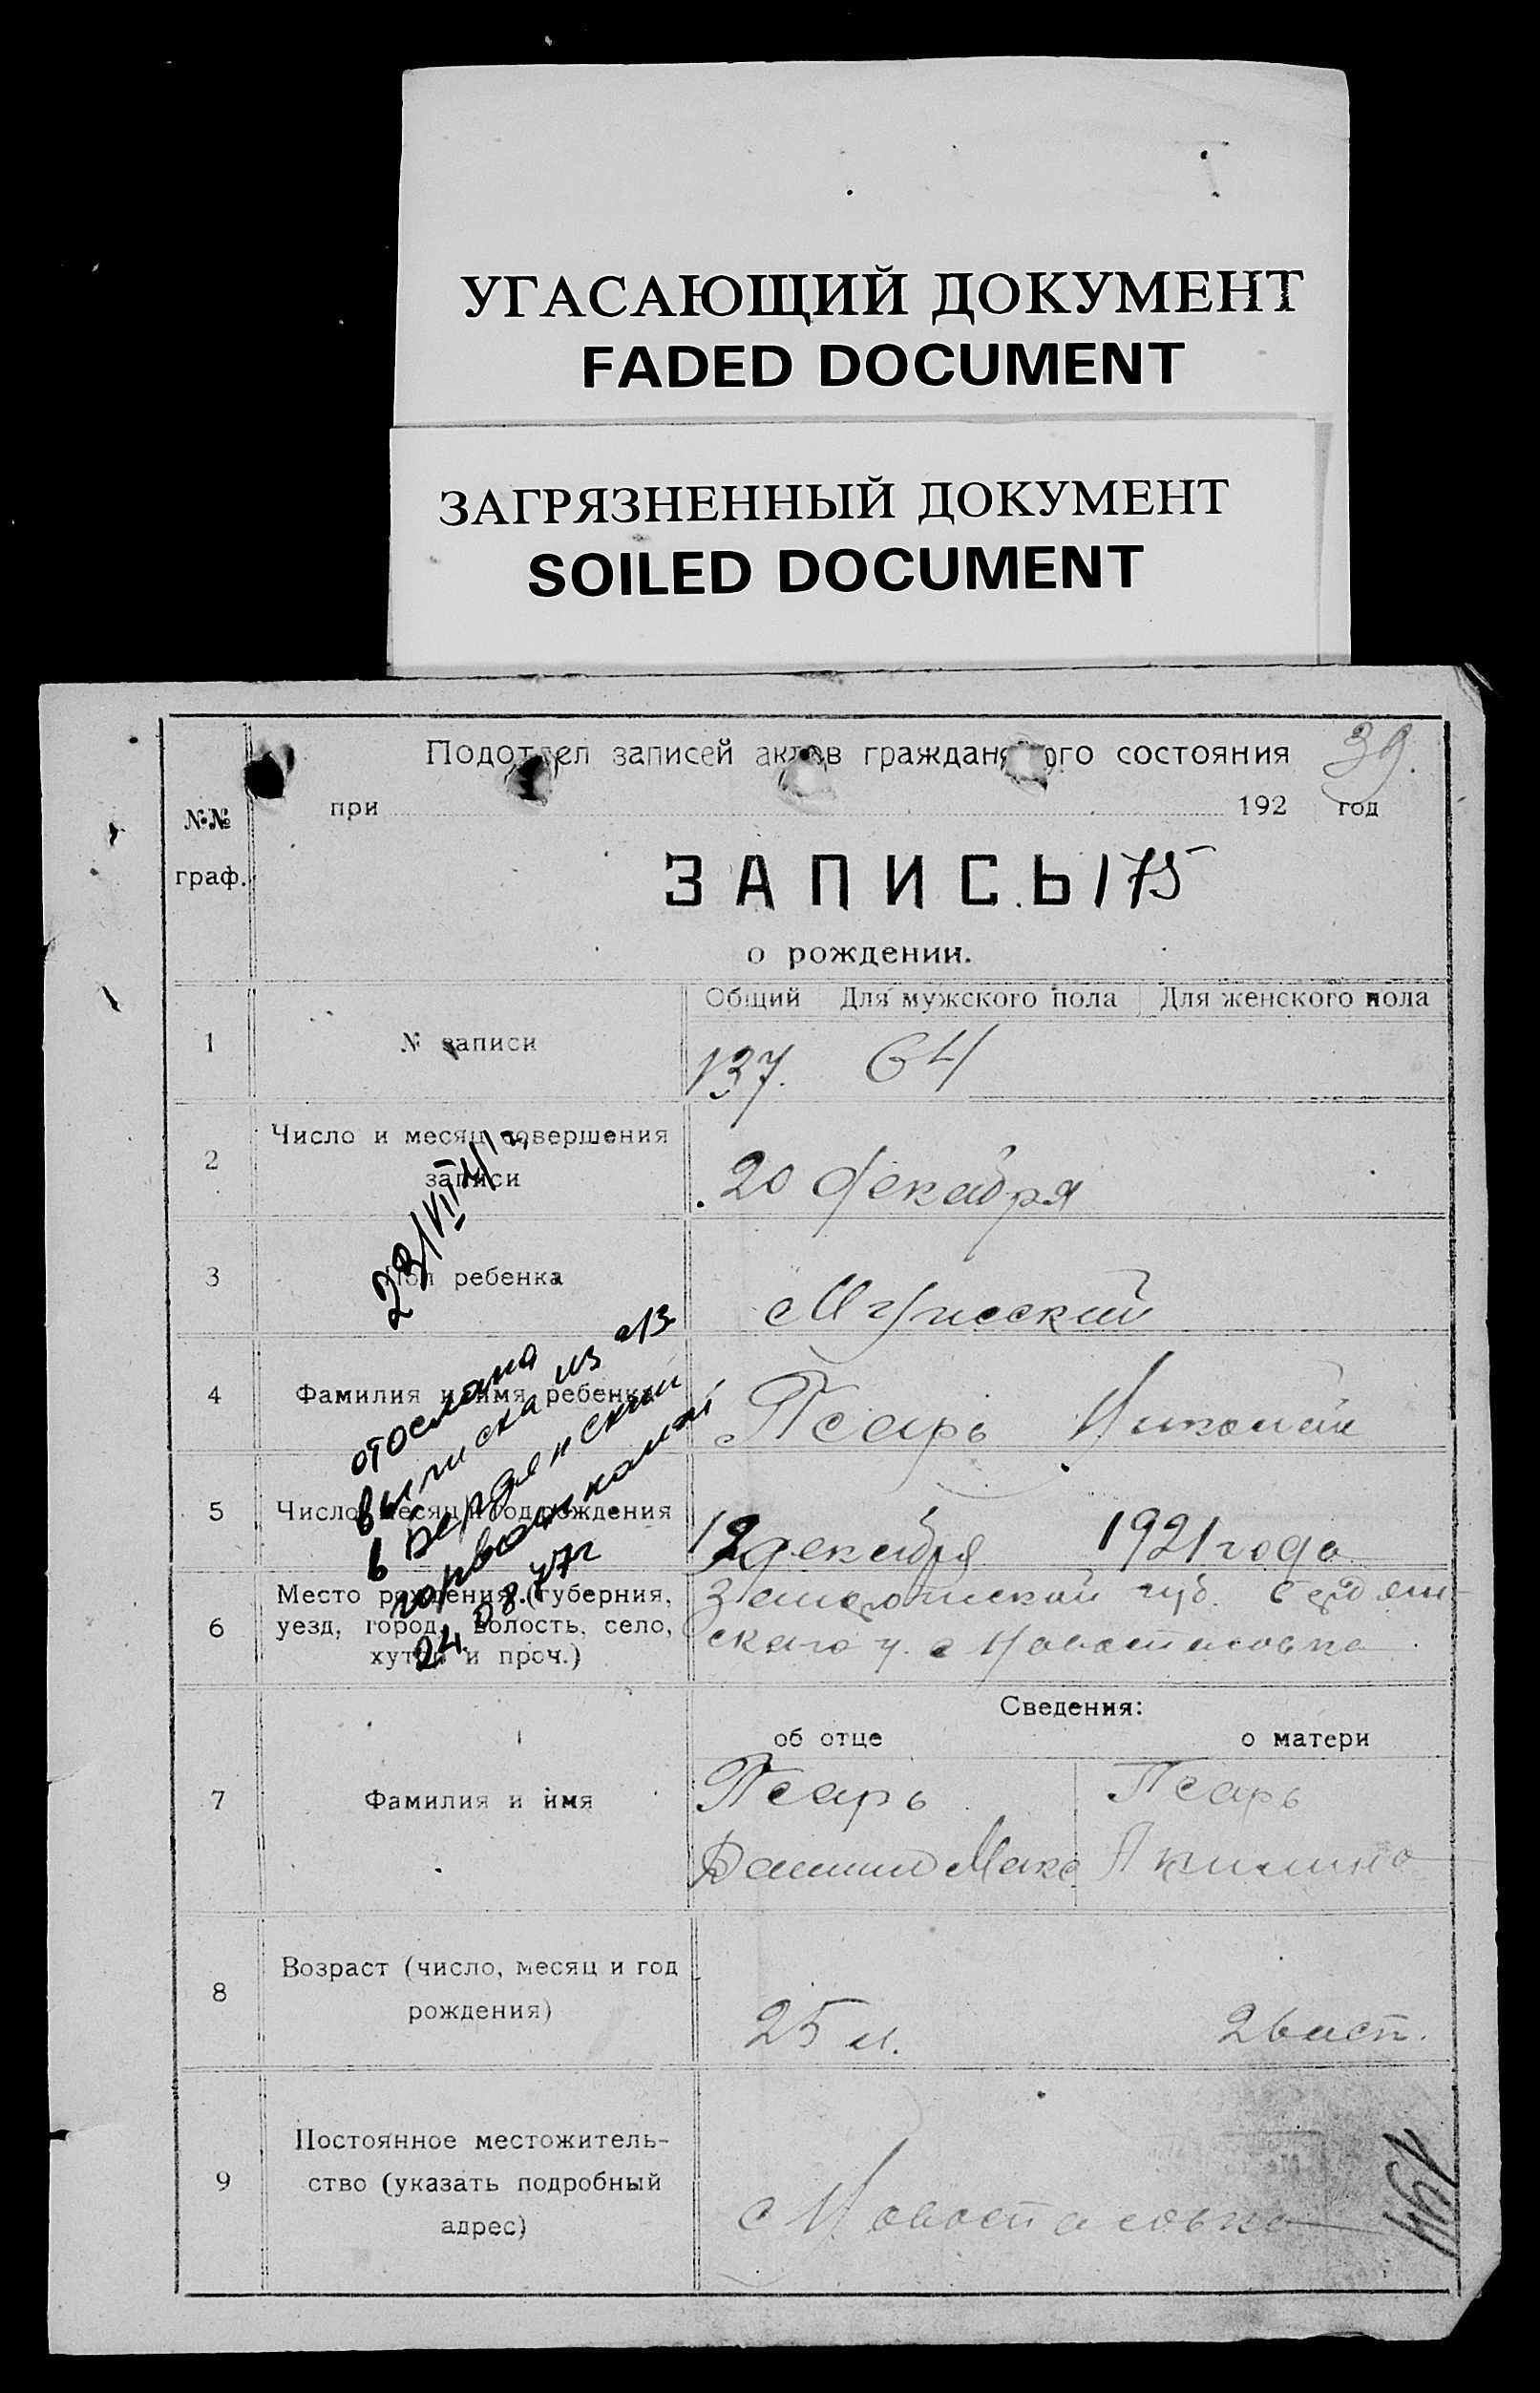 УГАСАЮЩИЙ ДОКУМЕНТ
FADED DOCUMENT
ЗАГРЯЗНЕННЫЙ ДОКУМЕНТ
SOILED DOCUMENT
39.
Подотдел записей актов гражданского состояния
при 192 год
№№
граф.
ЗАПИСЬ 175
о рождении.
Общий Для мужского пола Для женского пола
1 № записи 137. 64
2 Число и месяц совершения
записи
20 декабря
3 Пол ребенка Мужский
4 Фамилия и имя ребенка Псарь Николай
5 Число, месяц и год рождения 12 декабря 1921 года
6 Место рождения (губерния,
уезд, город, волость, село,
хутор и проч.)
губ. Бердян-
ского у. с Новоспасовка
23/VII
отослана
выписка из а/з
в Бердянский
горвоенкомат
24.08.47г
Сведения:
об отце о матери
7 Фамилия и имя
Псарь Псарь
Даниил Акилина
8 Возраст (число, месяц и год
рождения)
25 л. 26
9 Постоянное местожитель-
ство (указать подробный
адрес)
с Новоспасовка